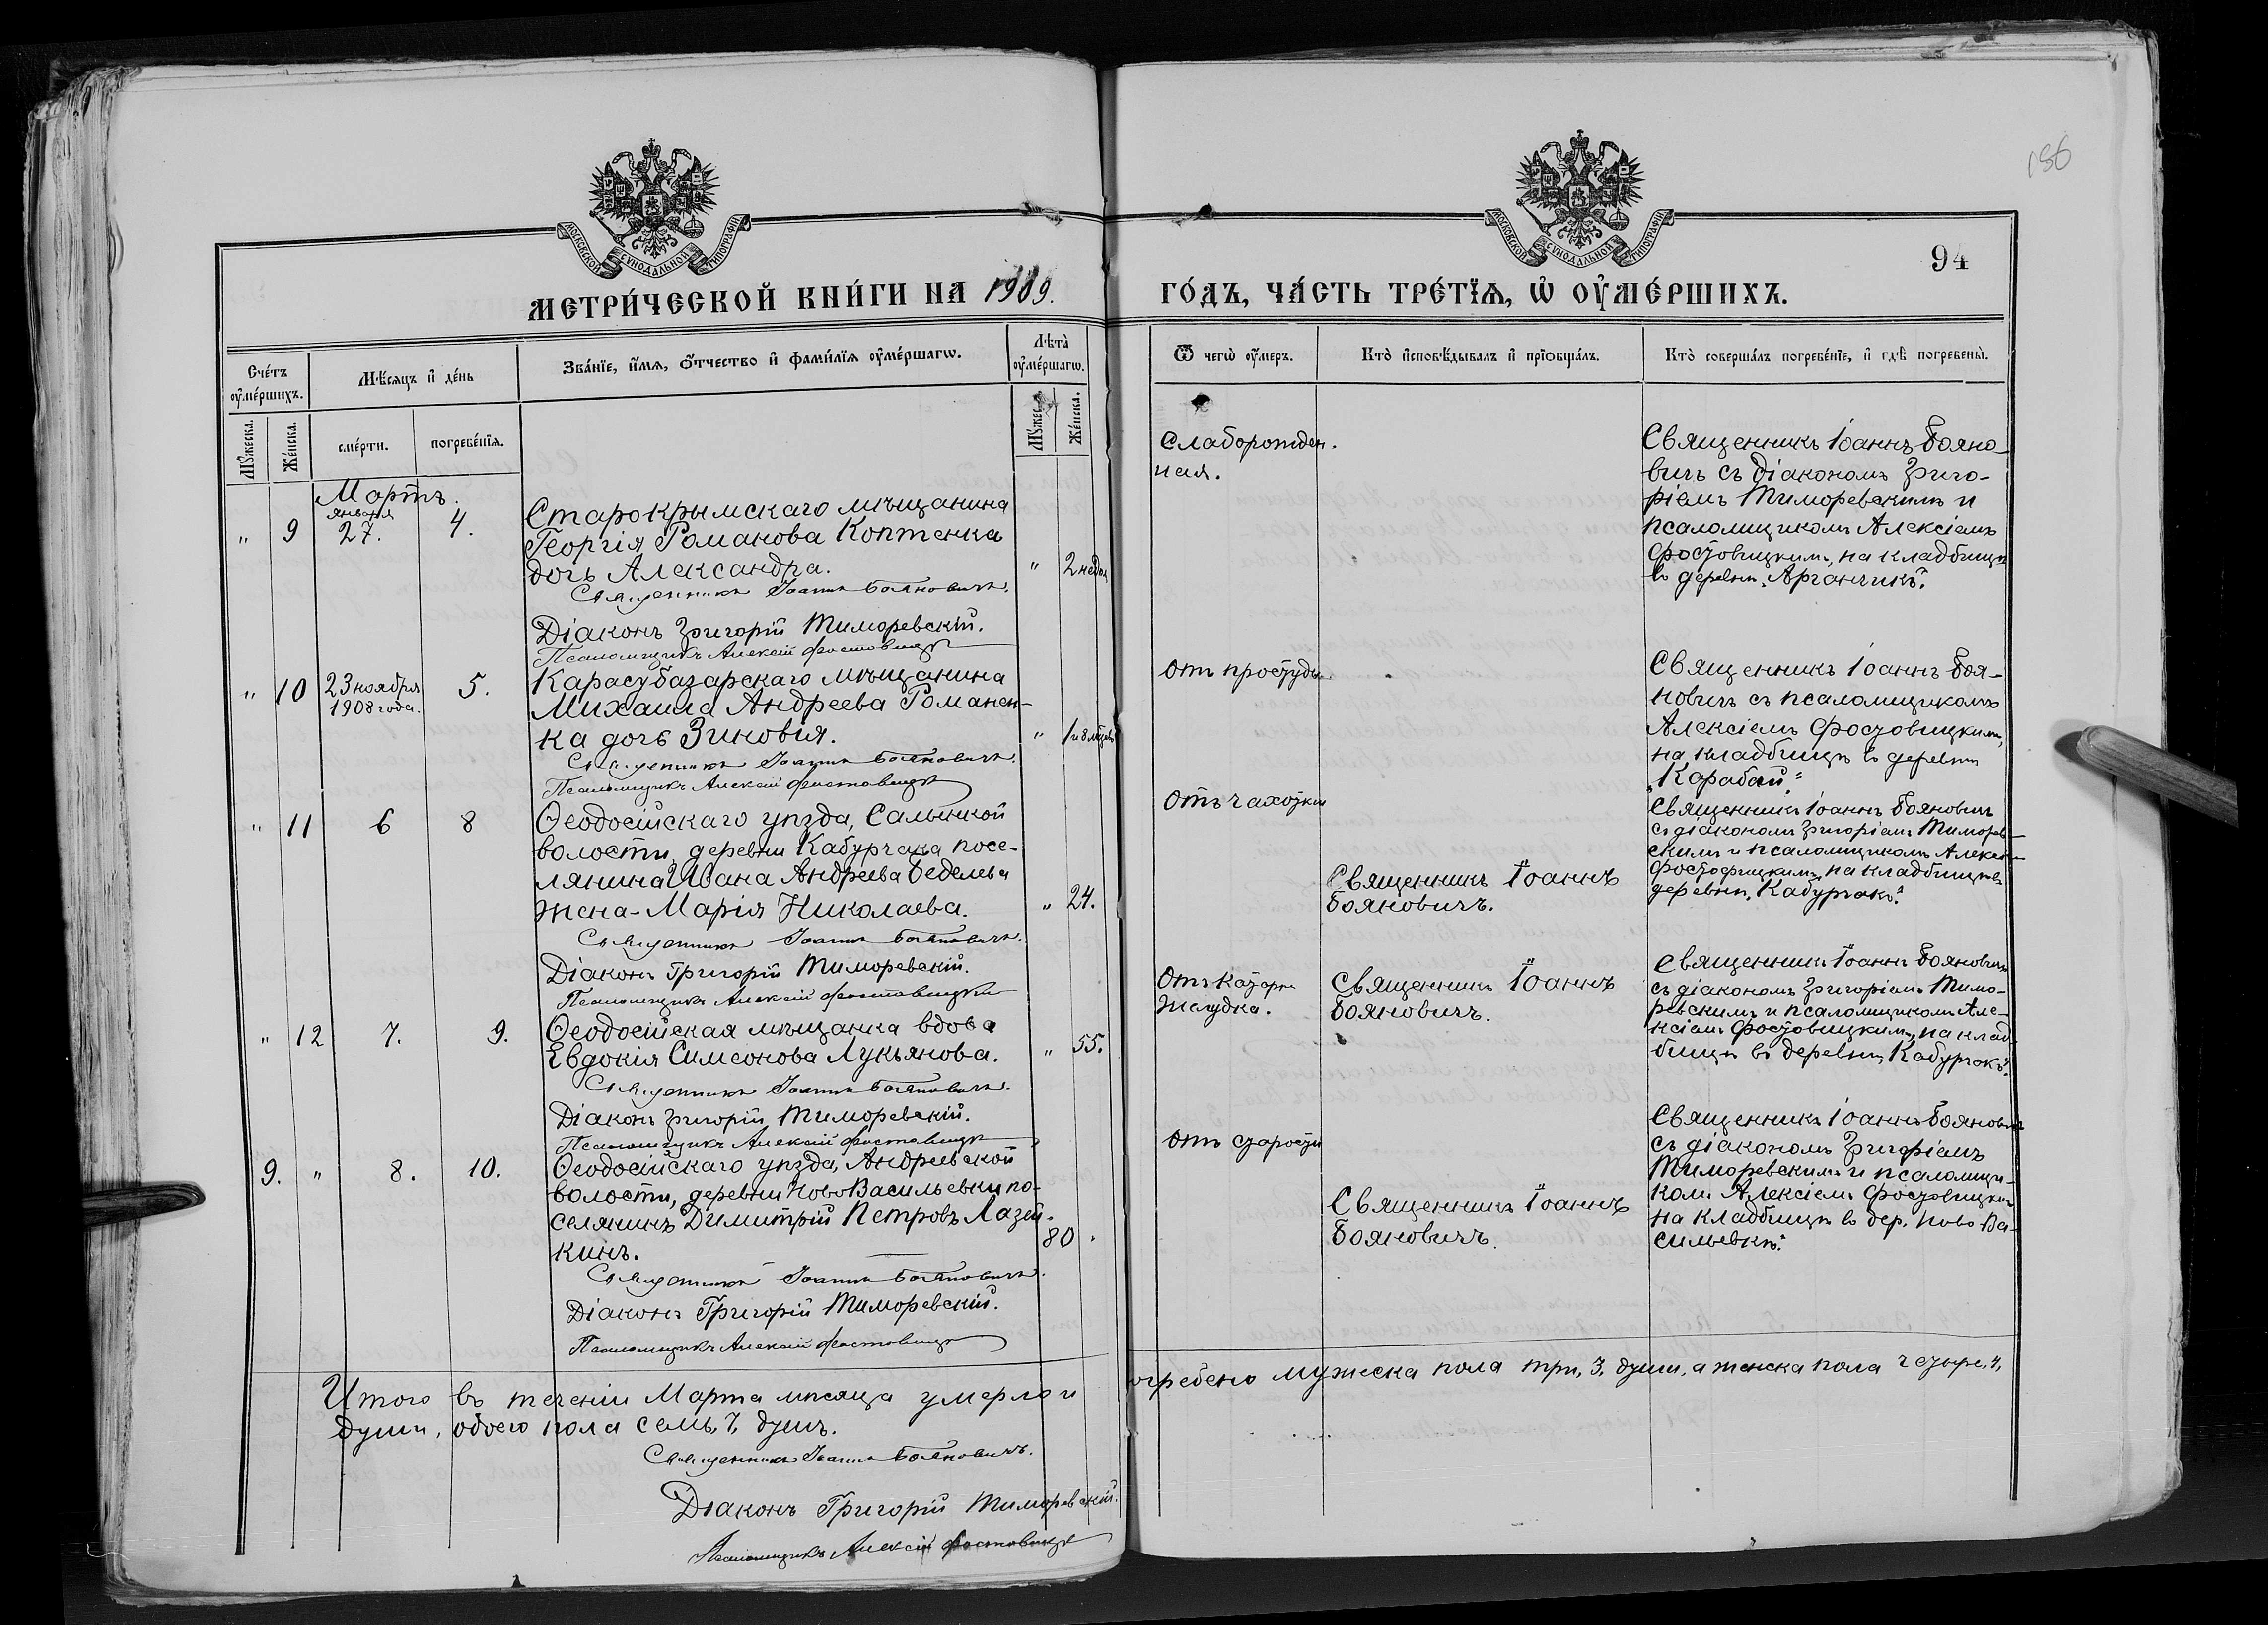 156
94
МОСКОВСКОЙ СѴНОДАЛЬНОЙ ТИПОГРАФІИ
МОСКОВСКОЙ СѴНОДАЛЬНОЙ ТИПОГРАФІИ
МЕТРИ́ЧЕСКОЙ КНИ́ГИ НА 1909.
ГО́ДЪ, ЧА́СТЬ ТРЕ́ТЇѦ, Ѿ ОУ҆МЕ́РШИХЪ.
Сче́тъ оу҆ме́ршихъ.
Мѣ́сяцъ и҆ де́нь
Зва́нїе, и҆́мѧ, ѻ҆́тчество и҆ фами́лїѧ оу҆ме́ршагѡ.
Лѣта̀ оу҆ме́ршагѡ.
Ѿ чегѡ̀ оу҆́меръ.
Кто̀ и҆сповѣ́дывалъ и҆ прїѡбща́лъ.
Кто̀ соверша́лъ погребе́нїе, и҆ гдѣ̀ погребены̀.
Мꙋ́жеска.
Же́нска.
сме́рти.
погребе́нїѧ.
Мꙋ́жес
Же́нска.
Мартъ.
" 9 января 27. 4.
Старокрымскаго мѣщанина
Георгія Романова Коптенка
дочь Александра. " 2 недѣл
Священникъ Іоаннъ Бояновичъ.
Діаконъ Григорій Тиморевскій.
Псаломщикъ Алексій Фостовицкій
Слаборожден.
ная.
Священникъ Іоаннъ Бояно-
вичъ съ діакономъ Григо-
ріемъ Тиморевскимъ и
псаломщикомъ Алексіемъ
Фостовицкимъ, на кладбищѣ
въ деревнѣ „Арганчикъ".
" 10 23 ноября 1908 года. 5.
Карасубазарскаго мѣщанина
Михаила Андреева Романен-
ка дочь Зиновія. " 1 и 8 мѣсяцев
Священникъ Іоаннъ Бояновичъ.
Псаломщикъ Алексій Фостовицкій
Отъ простуды
Священникъ Іоаннъ Боя-
новичъ съ псаломщикомъ
Алексіемъ Фостовицкимъ,
на кладбищѣ въ деревнѣ
„Карабай".
" 11 6 8
Ѳеодосійскаго уѣзда, Салынской
волости, деревни Кабурчака посе-
лянина Ивана Андреева Беделева
жена-Марія Николаева. " 24.
Священникъ Іоаннъ Бояновичъ.
Діаконъ Григорій Тиморевскій.
Псаломщикъ Алексій Фостовицкій
Отъ чахотки
Священникъ Іоаннъ
Бояновичъ.
Священникъ Іоаннъ Бояновичъ
съ діакономъ Григоріемъ Тиморев-
скимъ и псаломщикомъ Алексі
Фостовицкимъ, на кладбищѣ въ
деревнѣ „Кабурчакъ".
" 12 7. 9.
Ѳеодосійская мѣщанка вдова
Евдокія Симеонова Лукьянова. " 55.
Священникъ Іоаннъ Бояновичъ.
Діаконъ Григорій Тиморевскій.
Псаломщикъ Алексій Фостовицкій
Отъ катара
желудка.
Священникъ Іоаннъ
Бояновичъ.
Священникъ Іоаннъ Бояновичъ
съ діакономъ Григоріемъ Тимо-
ревскимъ и псаломщикомъ Але-
ксіемъ Фостовицкимъ, на клад-
бищѣ въ деревнѣ „Кабурчакъ".
9. " 8. 10.
Ѳеодосійскаго уѣзда, Андреевской
волости, деревни НовоВасильевки по-
селянинъ Димитрій Петровъ Лазей-
кинъ. 80
Священникъ Іоаннъ Бояновичъ.
Діаконъ Григорій Тиморевскій.
Псаломщикъ Алексій Фостовицкій
Отъ старости
Священникъ Іоаннъ
Бояновичъ.
Священникъ Іоаннъ Бояновичъ
съ діакономъ Григоріемъ
Тиморевскимъ и псаломщи-
комъ Алексіемъ Фостовицкимъ
на кладбищѣ въ дер. „Ново Ва-
сильевкѣ".
Итого въ теченіи Марта мѣсяца умерло и погребено мужеска пола три, 3, души, а женска пола четыре, 4,
души, обоего пола семь, 7, душъ.
Священникъ Іоаннъ Бояновичъ.
Діаконъ Григорій Тиморевскій.
Псаломщикъ Алексій Фостовицкій